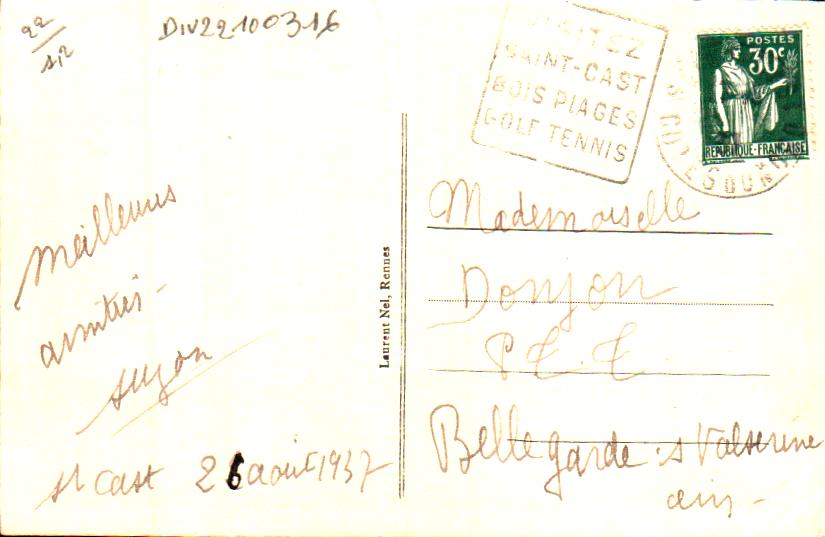 22
DIV22100316
VISITEZ
SAINT-CAST
BOIS PLAGES
GOLF TENNIS
POSTES
30c
REPUBLIQUE-FRANÇAISE
COTES DU N
Meilleures
amitiés -
Suzon
St Cast 26 août 1937
Laurent Nel, Rennes
Mademoiselle
Donjon
P. T. T.
Bellegarde s Valserine
ain -